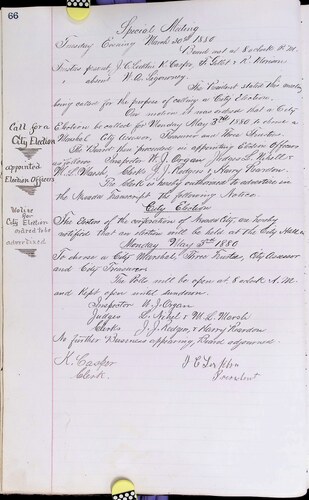 66
Special Meeting
Tuesday Evening March 30th 1880
Board met at 8 o'clock P.M.
Trustees present, J. C. K. Casper, F. Gillet & R.
absent W. A.
The President stated the
being called for the purpose of calling a City Election.
On motion it was ordered that a City
Election be called for Monday May 3rd 1880 to choose a
Marshal, City Assessor, Treasurer and Three Trustees.
The Board then proceeded in appointing Election Officers
as follows Inspector W. J. Organ, Judges L. Nebel &
M. L. Marsh, Clerks J. J. Rodgers & Harry Reardon.
The Clerk is hereby authorized to advertise in
the Transcript the following Notice.
City Election
The Electors of the corporation of City are hereby
notified that an election will be held at the City Hall on
Monday May 3rd 1880
To choose a City Marshal, Three Trustees, City Assessor
and City Treasurer
The Polls will be open at 8 o'clock A.M.
and kept open until sundown.
Inspector W. J. Organ
Judges L. Nebel & M. L. Marsh
Clerks J. J. Rodgers & Harry Reardon
No further Business appearing, Board adjourned.
K. Casper
Clerk.
J. C.
President
Call for a
City Election
appointed
Election Officers
Notice
for
City Election
ordered to be
advertised